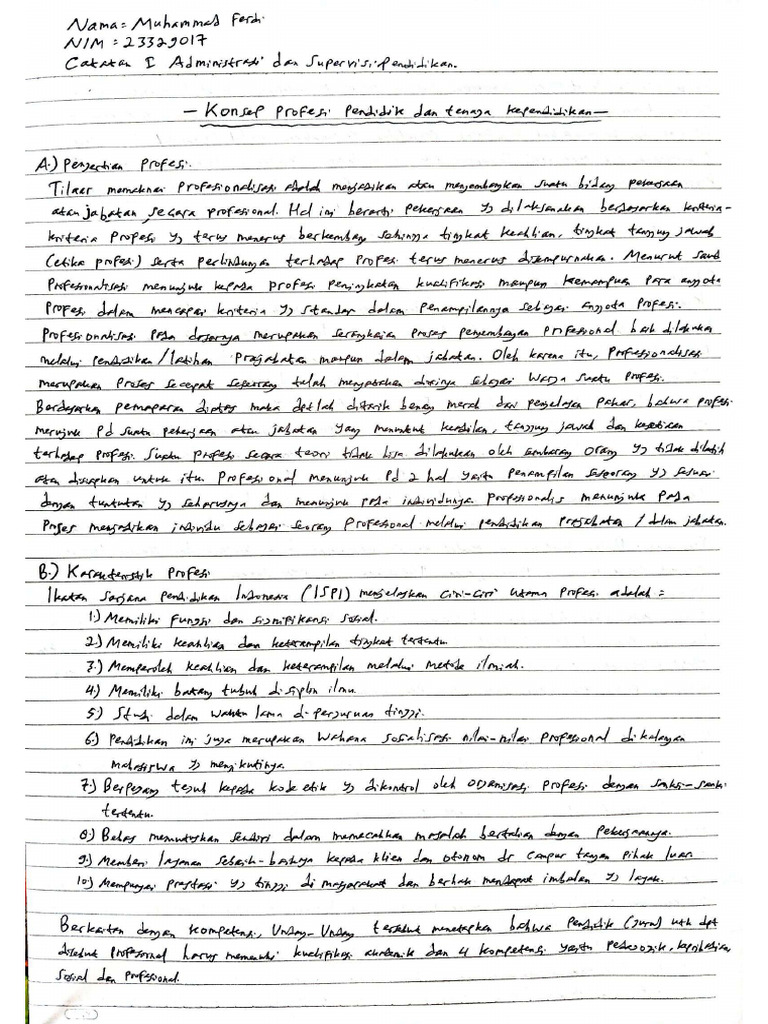 Nama = Muhammad Ferdi
NIM = 23329017
Catatan I Administrasi dan Supervisi Pendidikan.
- Konsep Profesi Pendidik dan tenaga kependidikan -
A.) Pengertian Profesi.
Tilaar memaknai Profesionalisasi adalah menjadikan atau mengembangkan suatu bidang pekerjaan
atau jabatan secara profesional. Hal ini berarti pekerjaan yg dilaksanakan berdasarkan kriteria-
kriteria profesi yg terus menerus berkembang sehingga tingkat keahlian, tingkat tanggung jawab
(etika profesi) serta perlindungan terhadap profesi terus menerus disempurnakan. Menurut
Profesionalisasi menunjuk kepada profesi peningkatan kualifikasi maupun kemampuan para anggota
Profesi dalam mencapai kriteria yg standar dalam penampilannya sebagai anggota profesi.
Profesionalisasi pada dasarnya merupakan serangkaian proses pengembangan professional baik dilakukan
melalui pendidikan/latihan Prajabatan maupun dalam jabatan. Oleh karena itu, Profesionalisasi
merupakan Proses seseorang telah menyatakan dirinya sebagai warga suatu profesi.
Berdasarkan pemaparan diatas maka dptlah ditarik benang merah dari penjelasan pakar, bahwa profesi
merujuk pd suatu pekerjaan atau jabatan yang menuntut keahlian, tanggung jawab dan kesetiaan
terhadap profesi. Suatu profesi secara teori tidak bisa dilakukan oleh sembarang orang yg tidak dilatih
atau disiapkan untuk itu. Profesional menunjuk Pd 2 hal yaitu penampilan seseorang yg sesuai
dengan tuntutan yg seharusnya dan menunjuk pada individunya. Professionalis menunjuk pada
Proses menjadikan individu sebagai seorang Professional melalui pendidikan prajabatan / dalam jabatan.
B.) Karakteristik Profesi
Ikatan Sarjana Pendidikan Indonesia (ISPI) menjelaskan ciri-ciri utama Profesi adalah =
1.) Memiliki fungsi dan signifikansi sosial.
2.) Memiliki keahlian dan keterampilan tingkat tertentu
3.) Memperoleh keahlian dan keterampilan melalui metode ilmiah.
4.) Memiliki batang tubuh disiplin ilmu.
5.) Studi dalam waktu lama di perguruan tinggi.
6.) Pendidikan ini juga merupakan wahana sosialisasi nilai-nilai profesional dikalangan
mahasiswa yg mengikutinya.
7.) Berpegang teguh kepada kode etik yg dikontrol oleh organisasi profesi dengan sanksi-sanksi
tertentu.
8.) Bebas memutuskan sendiri dalam memecahkan masalah bertalian dengan pekerjaannya.
9.) Memberi layanan sebaik-baiknya kepada klien dan otonom dr campur tangan pihak luar.
10.) Mempunyai prestasi yg tinggi di masyarakat dan berhak mendapat imbalan yg layak.
Berkaitan dengan kompetensi, Undang-Undang tersebut menetapkan bahwa Pendidik (guru) utk dpt
disebut profesional harus memenuhi kualifikasi akademik dan 4 kompetensi yaitu pedagogik, kepribadian
sosial dan profesional.